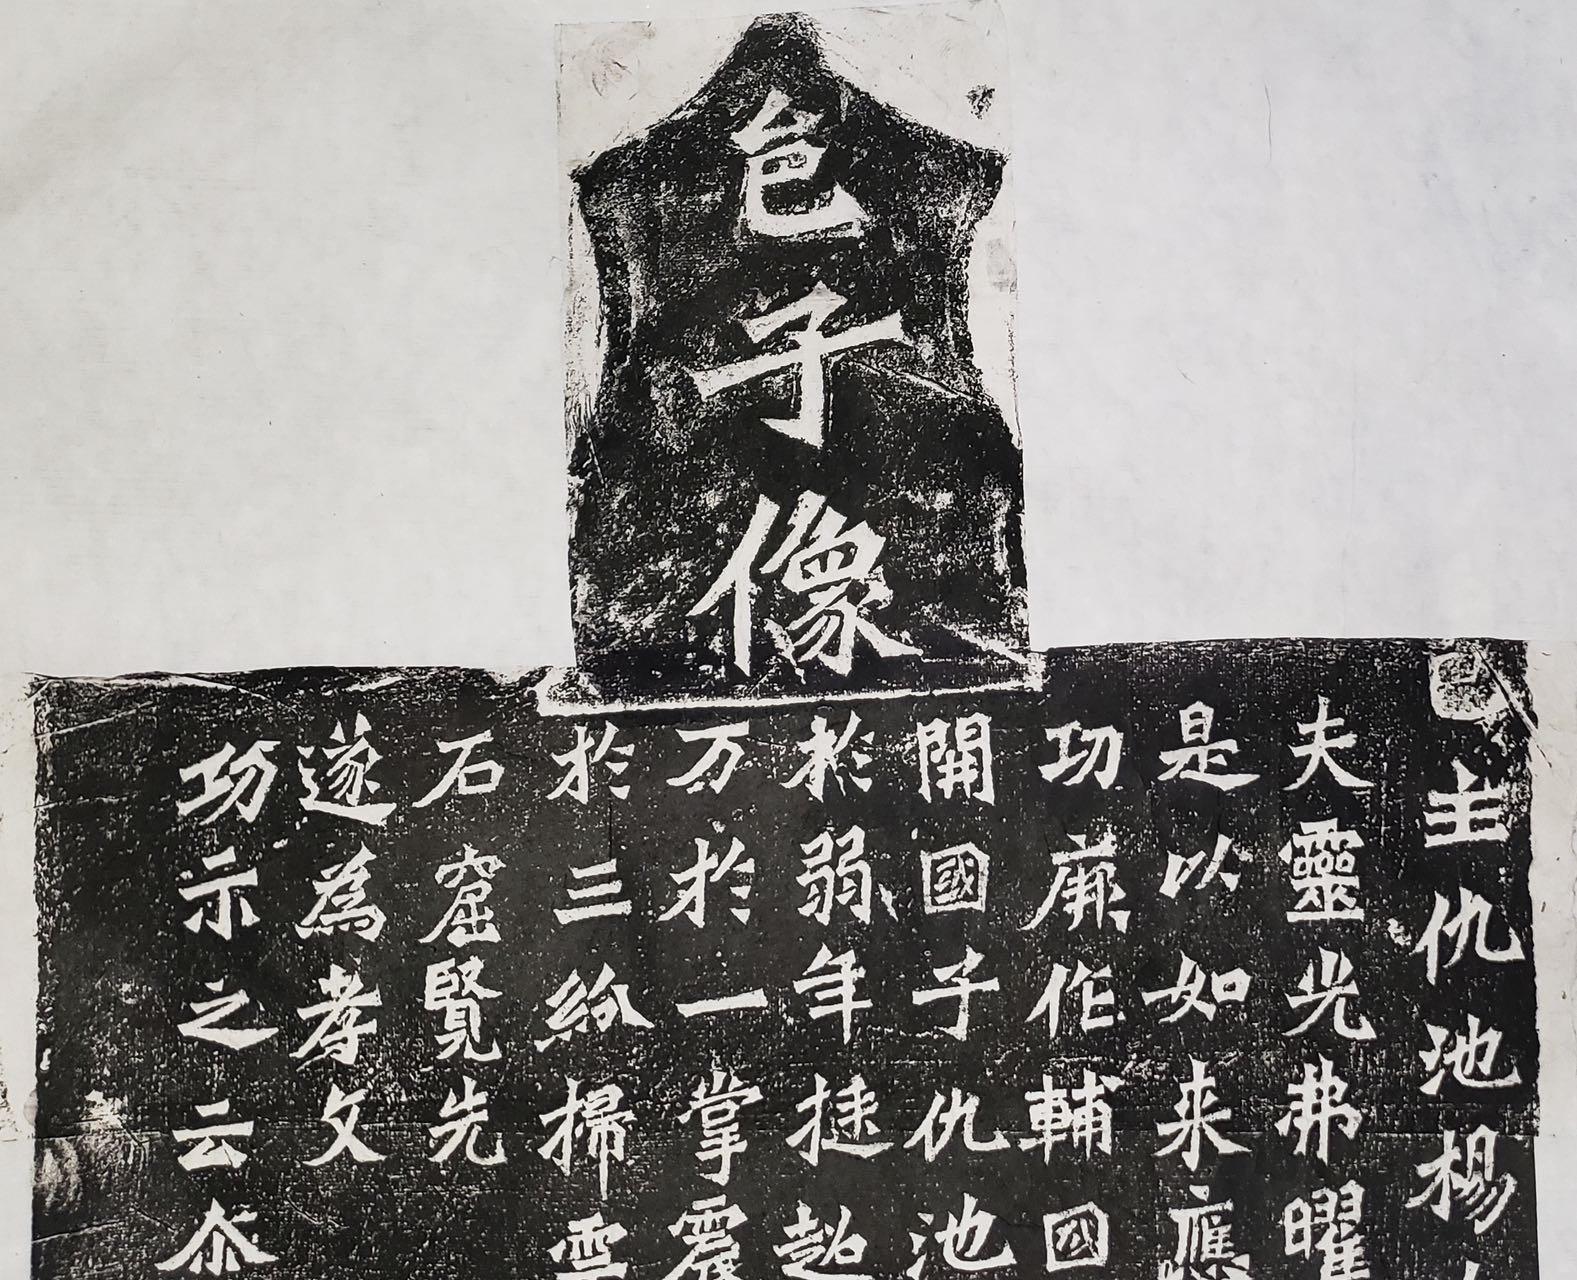 邑子像
主仇池楊
夫靈光弗曜
是以如来應
功厥作輔國
開國子仇池
於弱年挺超
万於一掌震
於三紛掃雲
石窟覽先
遂為孝文
功示之云尒